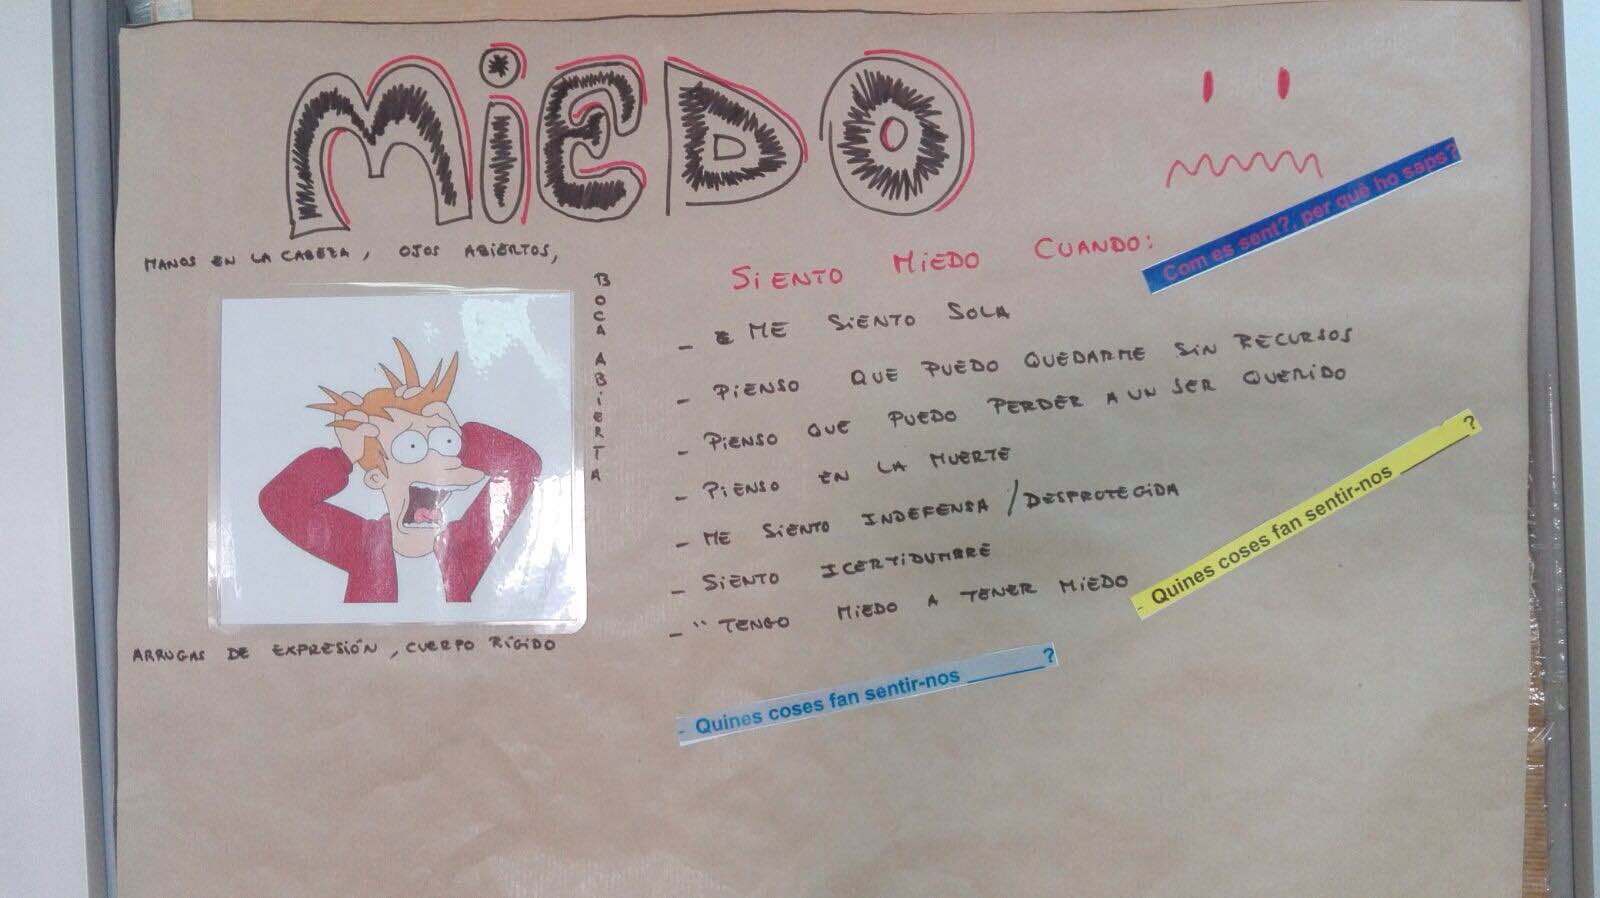 MiEDO
MANOS EN LA CABEZA, OJOS ABIERTOS,
BOCA ABIERTA
ARRUGAS DE EXPRESIÓN, CUERPO RÍGIDO
SiENTO MiEDO CUANDO:
- ME SiENTO SOLA
- PiENSO QUE PUEDO QUEDARME SiN RECURSOS
- PiENSO QUE PUEDO PERDER A UN SER QUERiDO
- PiENSO EN LA MUERTE
- ME SiENTO INDEFENSA / DESPROTEGiDA
- SiENTO ICERTiDUMBRE
- " TENGO MiEDO A TENER MiEDO
Com es sent?, per què ho saps?
- Quines coses fan sentir-nos ________?
- Quines coses fan sentir-nos ________?